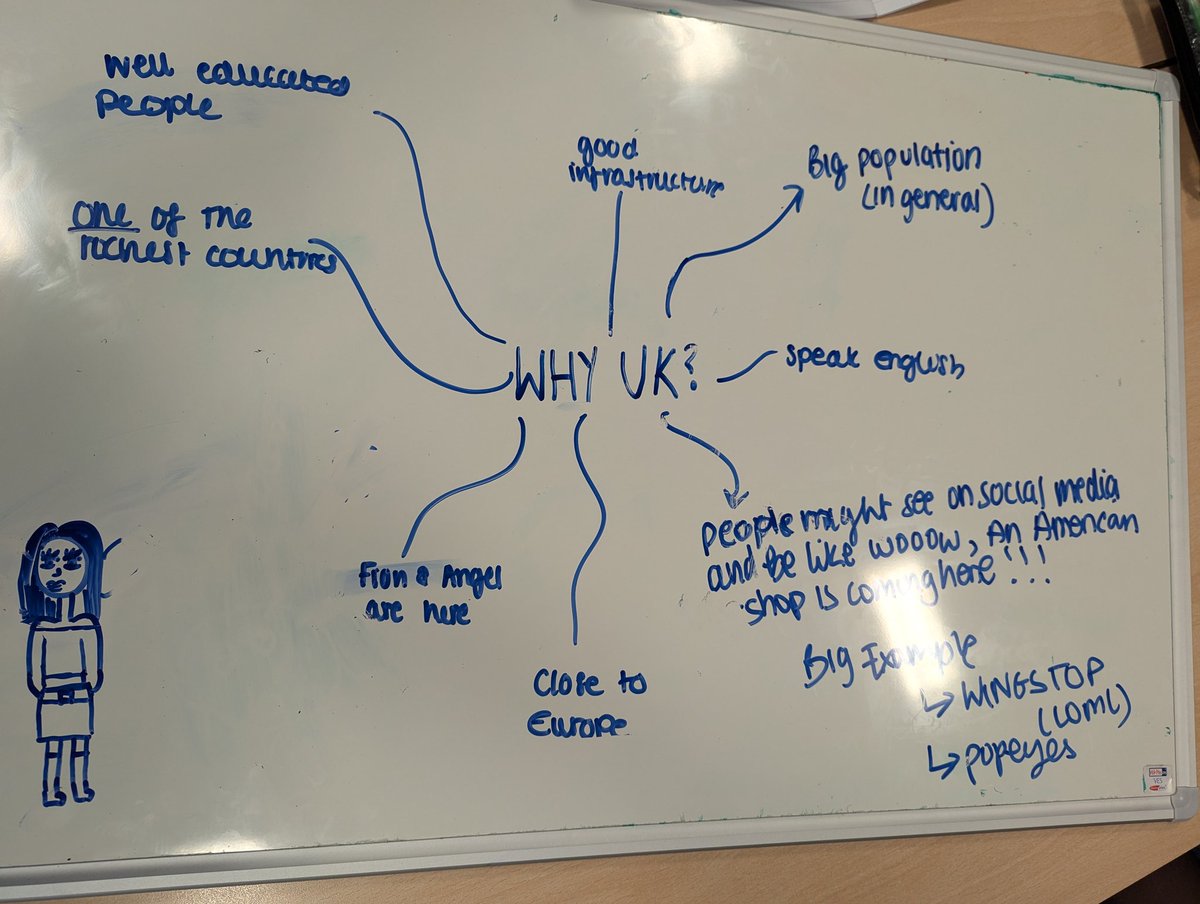 Well educated
People
one of the
richest countries
good
infrastructure
Big population
(in general)
WHY UK?
speak english
people might see on social media
and be like wooow, An American
shop is coming here!!!
Big Example
↳ WINGSTOP
(LOML)
↳ popeyes
Angel
are here
Close to
Europe